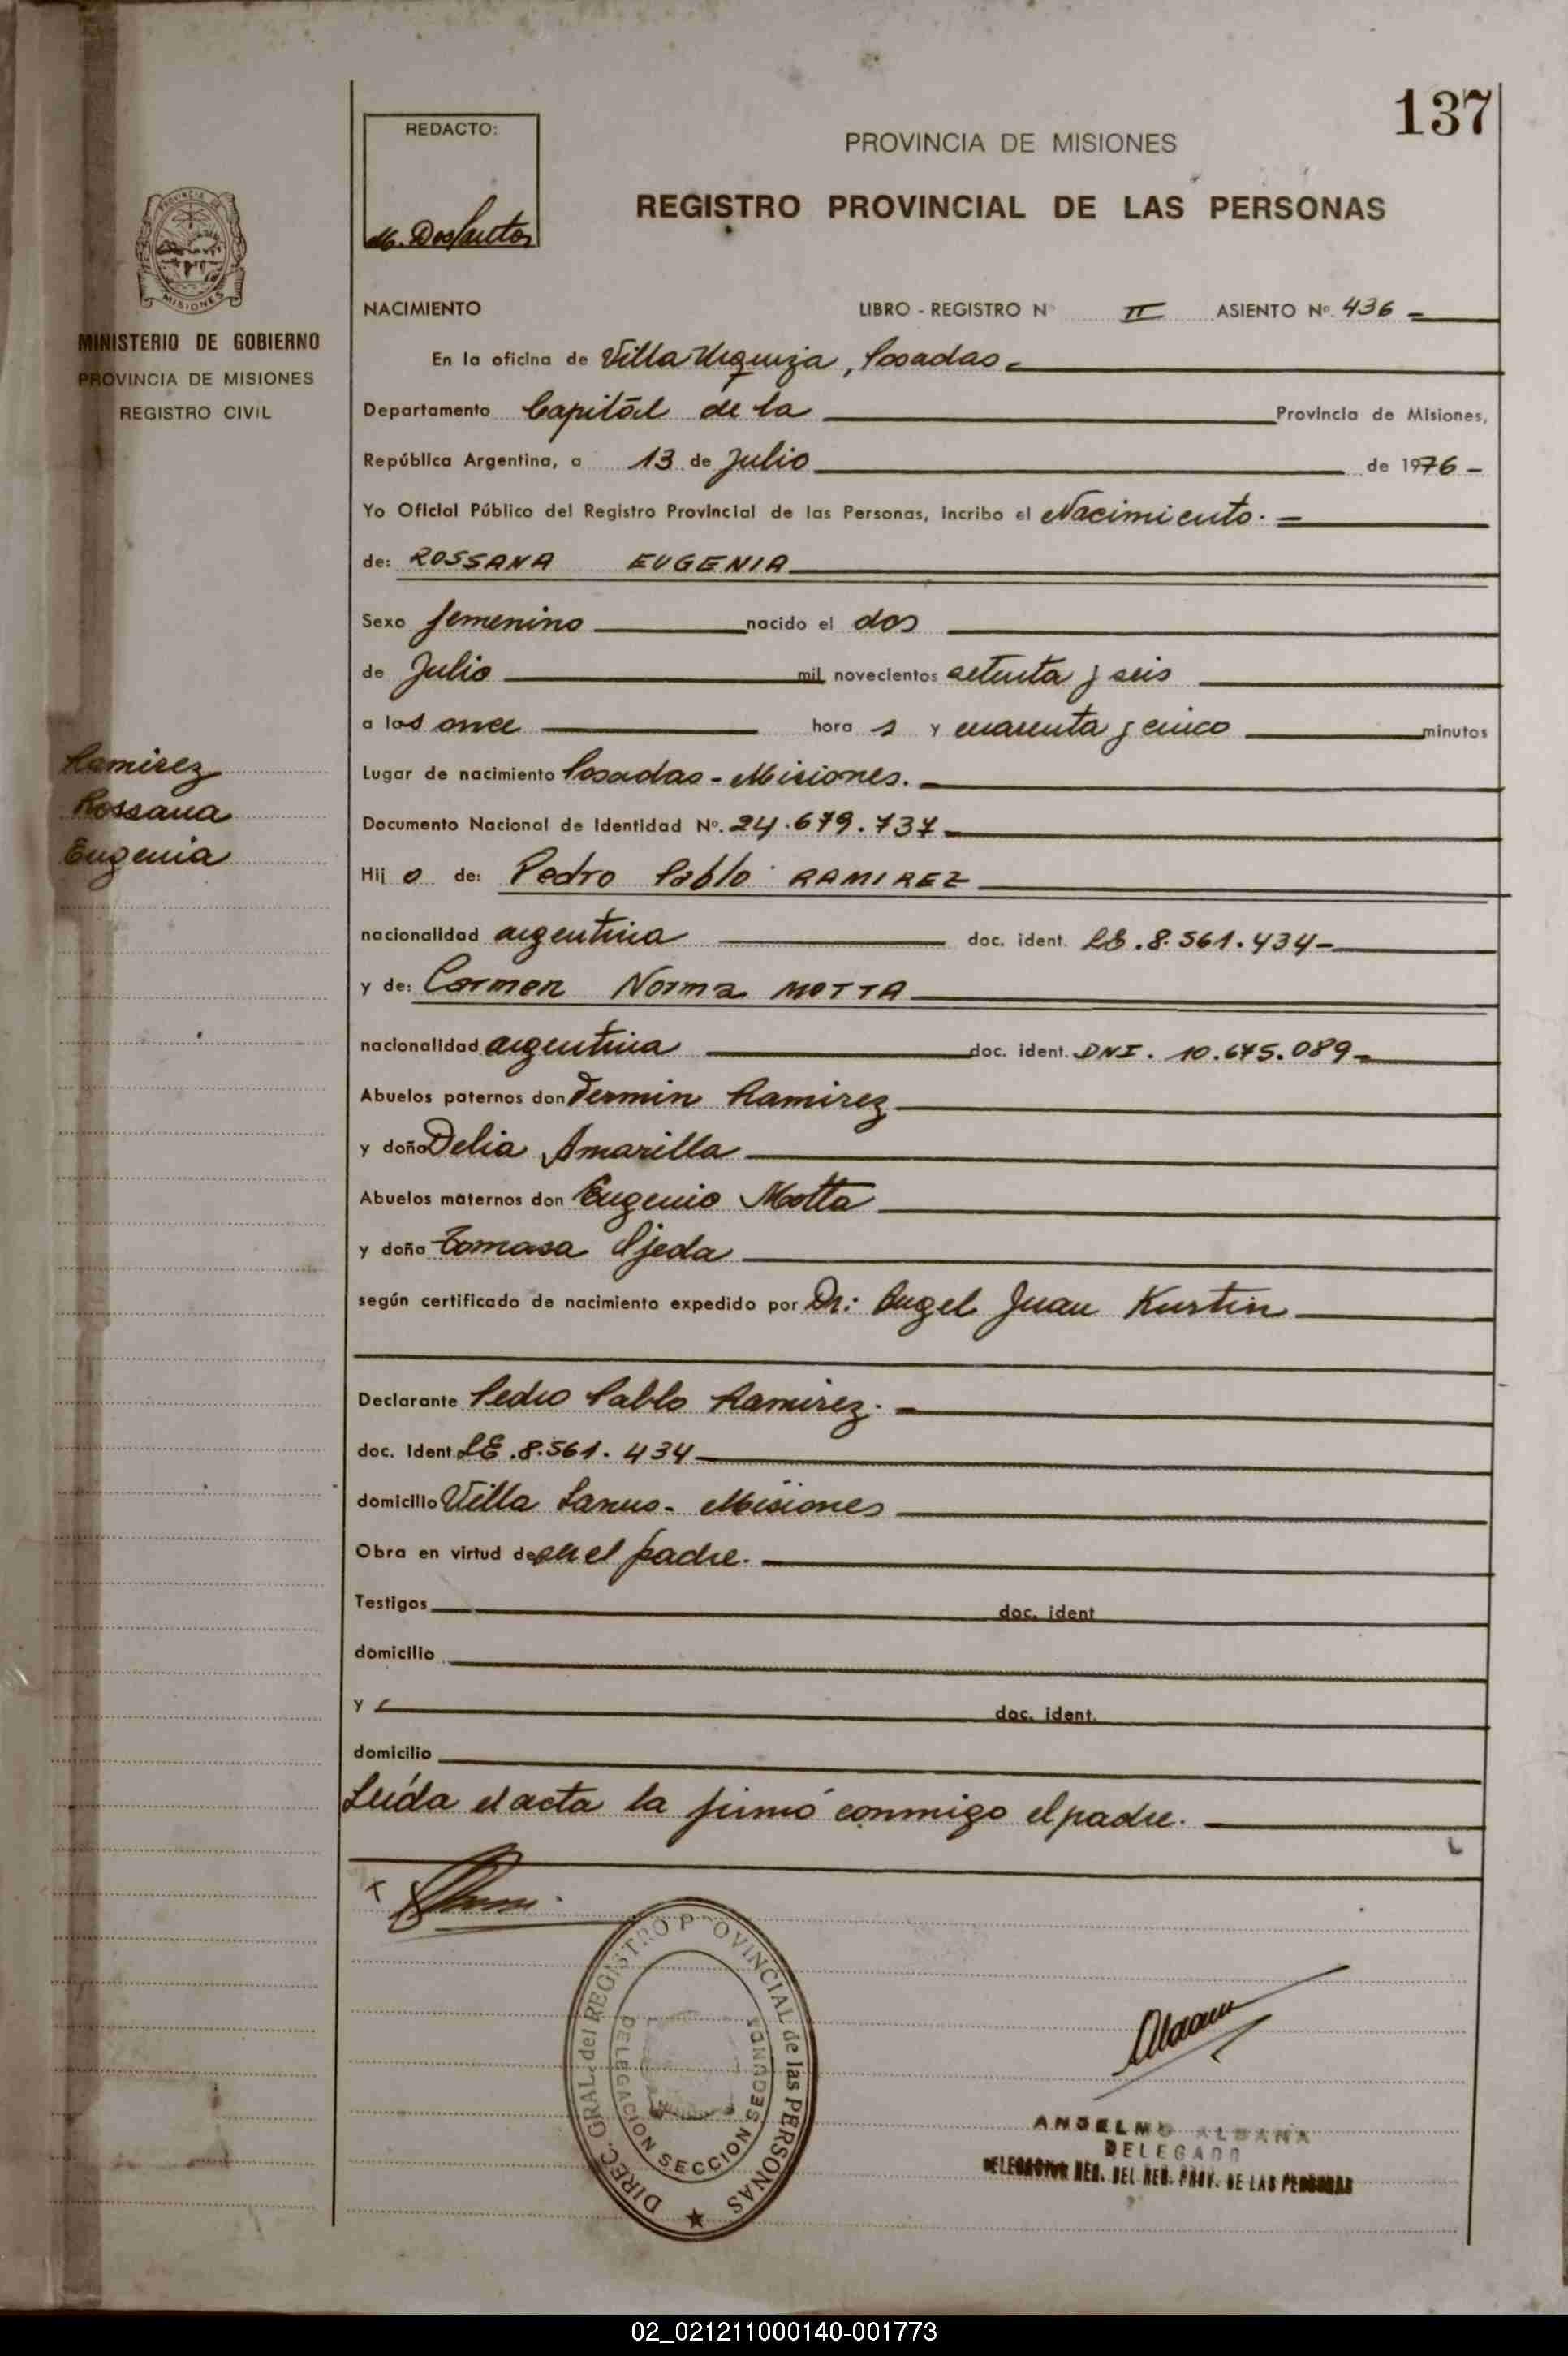 137
REDACTO:
M. DosSantos
PROVINCIA DE MISIONES
REGISTRO PROVINCIAL DE LAS PERSONAS
PROVINCIA DE
MISIONES
MINISTERIO DE GOBIERNO
PROVINCIA DE MISIONES
REGISTRO CIVIL
NACIMIENTO LIBRO - REGISTRO Nº II ASIENTO Nº. 436
En la oficina de Villa Urquiza, Posadas
Departamento Capital de la Provincia de Misiones,
República Argentina, a 13 de Julio de 1976
Yo Oficial Público del Registro Provincial de las Personas, incribo el Nacimiento.
de: ROSSANA EUGENIA
Sexo femenino nacido el dos
de Julio mil novecientos setenta y seis
a las once hora s y cuarenta y cinco minutos
Ramirez
Rossana
Eugenia
Lugar de nacimiento Posadas - Misiones.
Documento Nacional de Identidad Nº. 24.679.737
Hij o de: Pedro Pablo RAMIREZ
nacionalidad argentina doc. ident. LE. 8.561.434
y de: Carmen Norma MOTTA
nacionalidad argentina doc. ident. DNI. 10.675.089
Abuelos paternos don Fermin Ramirez
y doña Delia Amarilla
Abuelos maternos don Eugenio Motta
y doña Tomasa Ojeda
según certificado de nacimiento expedido por Dr: Angel Juan Kustin
Declarante Pedro Pablo Ramirez.
doc. Ident. LE. 8.561.434
domicilio Villa Lanus - Misiones
Obra en virtud de ser el padre.
Testigos doc. ident
domicilio
y doc. ident.
domicilio
Leída el acta la firmó conmigo el padre.
DIREC. GRAL. del REGISTRO PROVINCIAL de las PERSONAS
DELEGACION SECCION SEGUNDA
ANSELMO ALDANA
DELEGADO
DELEGACION SEG. DEL REG. PROV. DE LAS PERSONAS
02_021211000140-001773